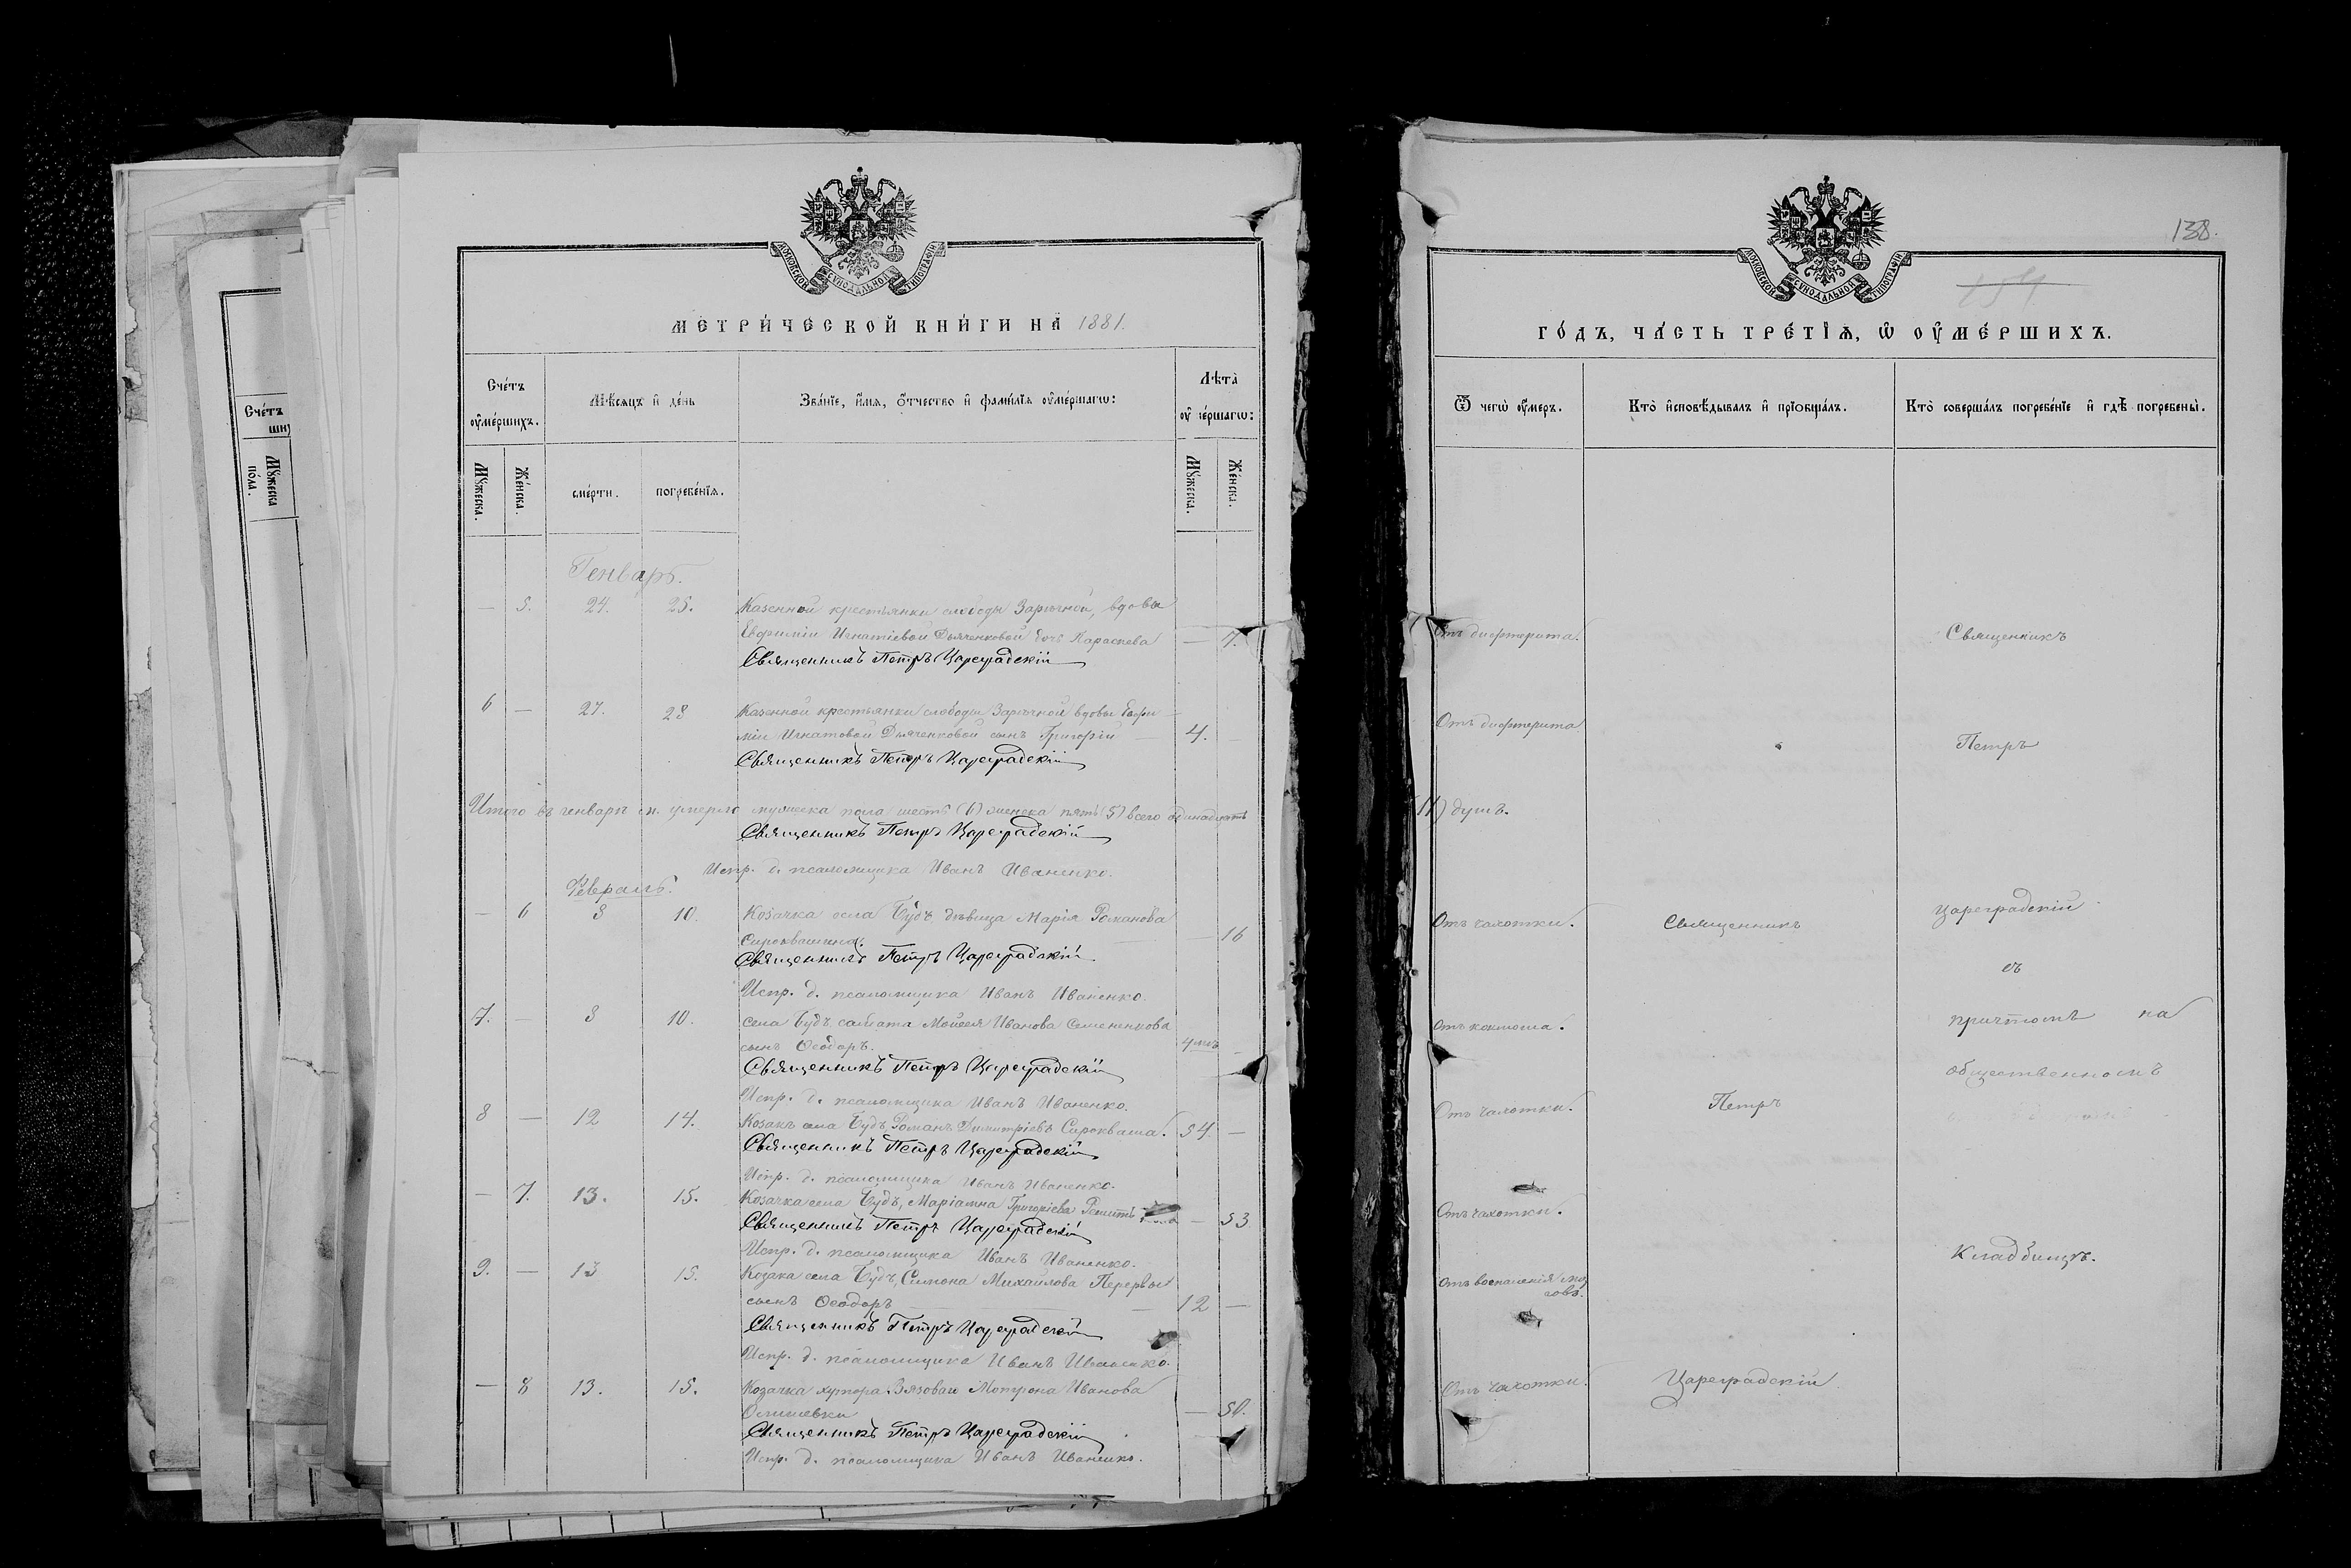 МОСКОВСКОЙ СѴНОДАЛЬНОЙ ТИПОГРАФІИ
МЕТРИ́ЧЕСКОЙ КНИ́ГИ НА̀ 1881.
Сче́тъ ᲂу҆ме́ршихъ.
Мѣ́сяцъ и҆ де́нь
Зва́нїе, и҆́мѧ, ѻ҆́тчество и҆ фами́лїѧ ᲂу҆ме́ршагѡ:
Лѣ́та ᲂу҆ме́ршагѡ:
Мꙋ́жеска.
Же́нска.
сме́рти.
погребе́нїѧ.
Мꙋ́жеска.
Же́нска.
Генварь.
— 5. 24. 25. Казенной крестьянки слободы Заръчной, вдовы
Евфиміи Игнатіевой Дьяченковой дочь Параскева — 7.
Священникъ Петръ Цареградскій
6 — 27. 28 Казенной крестьянки слободы Заръчной вдовы Евфи
міи Игнатовой Дьяченковой сынъ Григорій — 4. —
Священникъ Петръ Цареградскій
Итого въ генваръ м. умерло мужеска пола шесть (6) женска пять (5) всего одинадцать
Священникъ Петръ Цареградскій
Испр. д. псаломщика Иванъ Иваненко.
Февраль.
— 6 8 10. Козачка села Будъ дъвица Марія Романова
Сыроквашина. — 16
Священникъ Петръ Цареградскій
Испр. д. псаломщика Иванъ Иваненко.
7. — 8 10. Села Будъ солдата Моисея Иванова Семененкова
сынъ Ѳеодоръ. 4 —
Священникъ Петръ Цареградскій
Испр. д. псаломщика Иванъ Иваненко.
8 — 12 14. Козакъ села Будъ, Романъ Димитріевъ Сырокваша. 54. —
Священникъ Петръ Цареградскій
Испр. д. псаломщика Иванъ Иваненко.
— 7. 13. 15. Козачка села Будъ, Маріамна Григоріева — 53.
Священникъ Петръ Цареградскій
Испр. д. псаломщика Иванъ Иваненко.
9. — 13 15. Козака села Будъ, Симона Михайлова Перервы
сынъ Ѳеодоръ — 12 —
Священникъ Петръ Цареградскій
Испр. д. псаломщика Иванъ Иваненко.
— 8 13. 15. Козачка хутора Вязоваи Мотрона Иванова
— 50.
Священникъ Петръ Цареградскій
Испр. д. псаломщика Иванъ Иваненко.
Сче́тъ
Мꙋ́жеска по́ла.
138.
МОСКОВСКОЙ СѴНОДАЛЬНОЙ ТИПОГРАФІИ
ГО́ДЪ, ЧА́СТЬ ТРЕ́ТЇѦ, Ѡ҆ ОУ҆МЕ́РШИХЪ.
Ѿ чегѡ̀ ᲂу҆́меръ.
Кто̀ и҆сповѣ́дывалъ и҆ прїобща́лъ.
Кто̀ соверша́лъ погребе́нїе и҆ гдѣ̀ погребены̀.
Отъ дифтерита. Священникъ
Отъ дифтерита Петръ
(11) душъ.
Отъ чахотки. Священникъ Цареградскій
съ
Отъ коклюша. причтомъ на
общественномъ
Отъ чахотки. Петръ
Отъ чахотки.
Кладбищъ.
Отъ воспаленія моз
говъ.
Отъ чахотки. Цареградскій